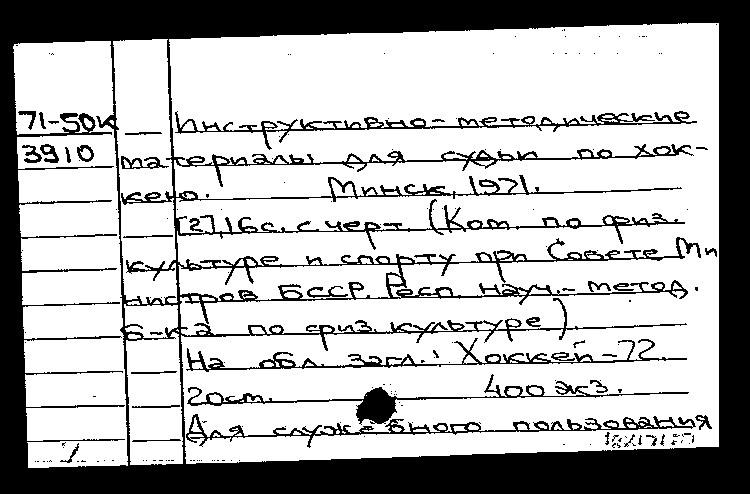 71-50к Инструктивно-методические
3910 материалы для судьи по хок-
кею. Минск, 1971.
[2], 16с. с черт. (Ком. по физ.
культуре и спорту при Совете Ми
нистров БССР. Респ. науч.-метод.
б-ка по физ. культуре).
На обл. загл.: Хоккей-72.
20см. 400 экз.
Для служебного пользования